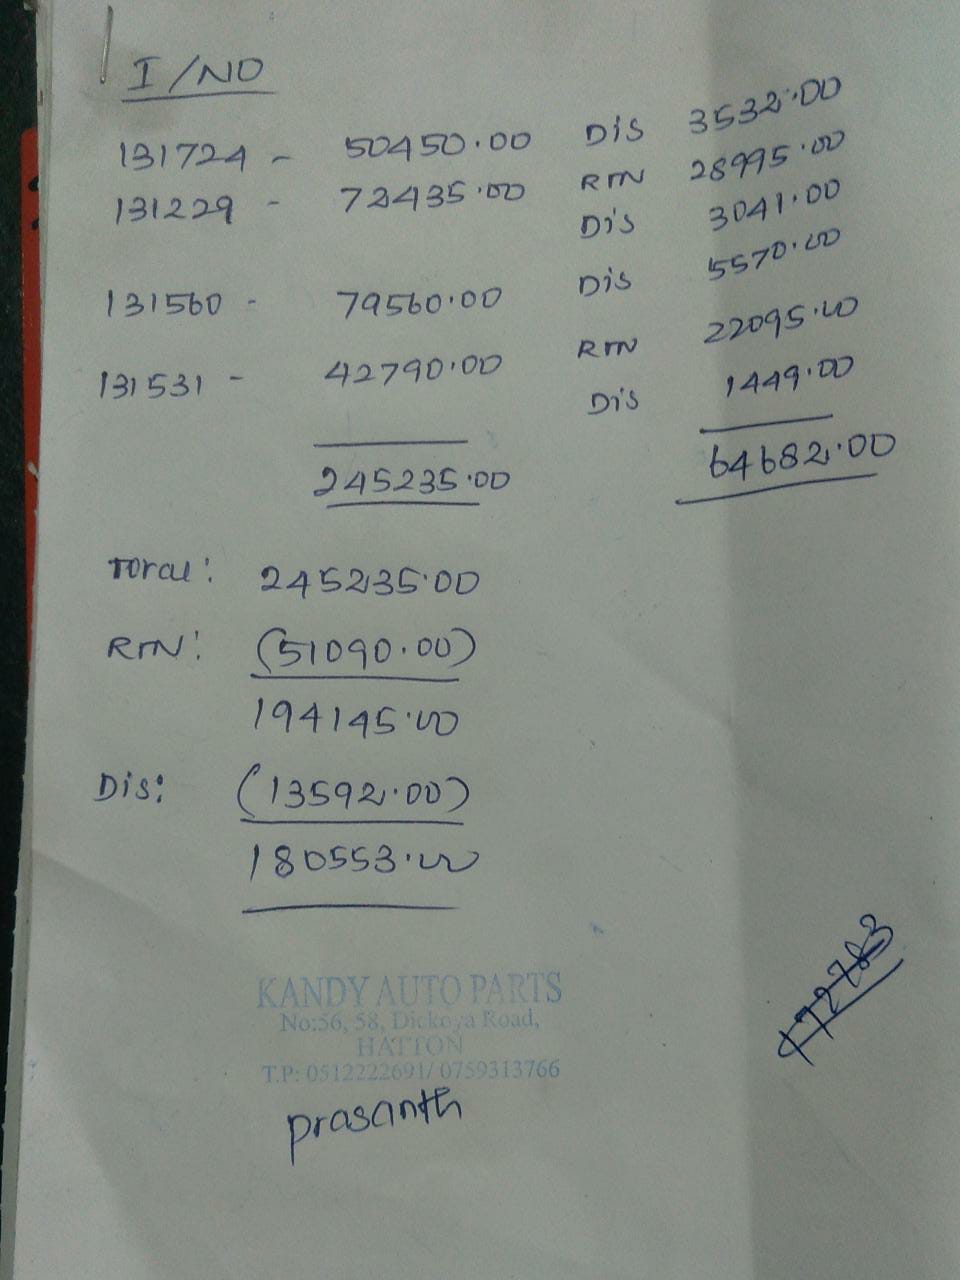 I/NO
131724 - 50450.00 Dis 3532.00
131229 - 72435.00 RTN 28995.00
Dis 3041.00
131560 - 79560.00 Dis 5570.00
131531 - 42790.00 RTN 22095.00
Dis 1449.00
245235.00 64682.00
Total: 245235.00
RTN: (51090.00)
194145.00
Dis: (13592.00)
180553.00
KANDY AUTO PARTS
No:56, 58, Dickoya Road,
HATTON
T.P: 0512222691/ 0759313766
prasanth